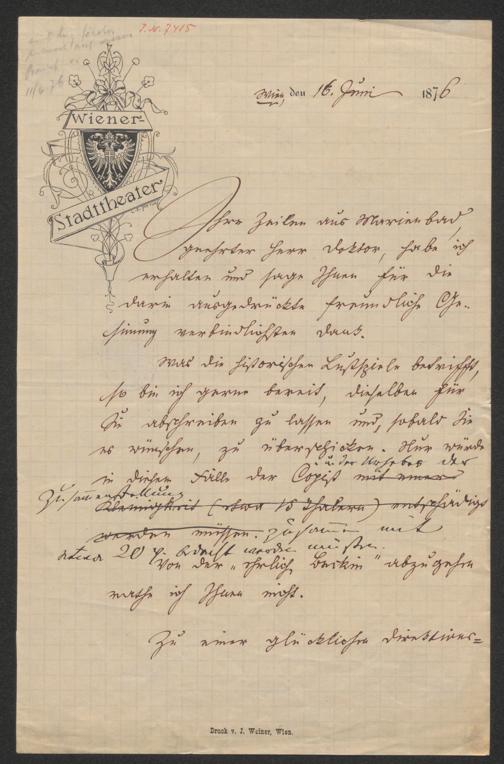 I. N. 7415
Wiener-
Stadttheater
Wien, den 16. Juni 1876
Ihre Zeilen aus Marienbad,
geehrter Herr Doktor, habe ich
erhalten und sage Ihnen für die
darin ausgedrückte freundliche Ge-
sinnung verbindlichsten Dank.
Was die historischen Lustspiele betrifft,
so bin ich gerne bereit, dieselben für
Sie abschreiben zu lassen und, sobald Sie
es wünschen, zu überschicken. Nur würde
u. der Urheber der
in diesem Falle der Copist mit einer
Zusammenstellung
Kleinigkeit (etwa 15 Thalern) entschädigt
werden müssen. zusammen mit
etwa 20 bedacht werden müssen.
Von der "ehrlich" abzugehen
rathe ich Ihnen nicht.
Zu einer glücklichen Direktions-
Druck v. J. Weiner, Wien.